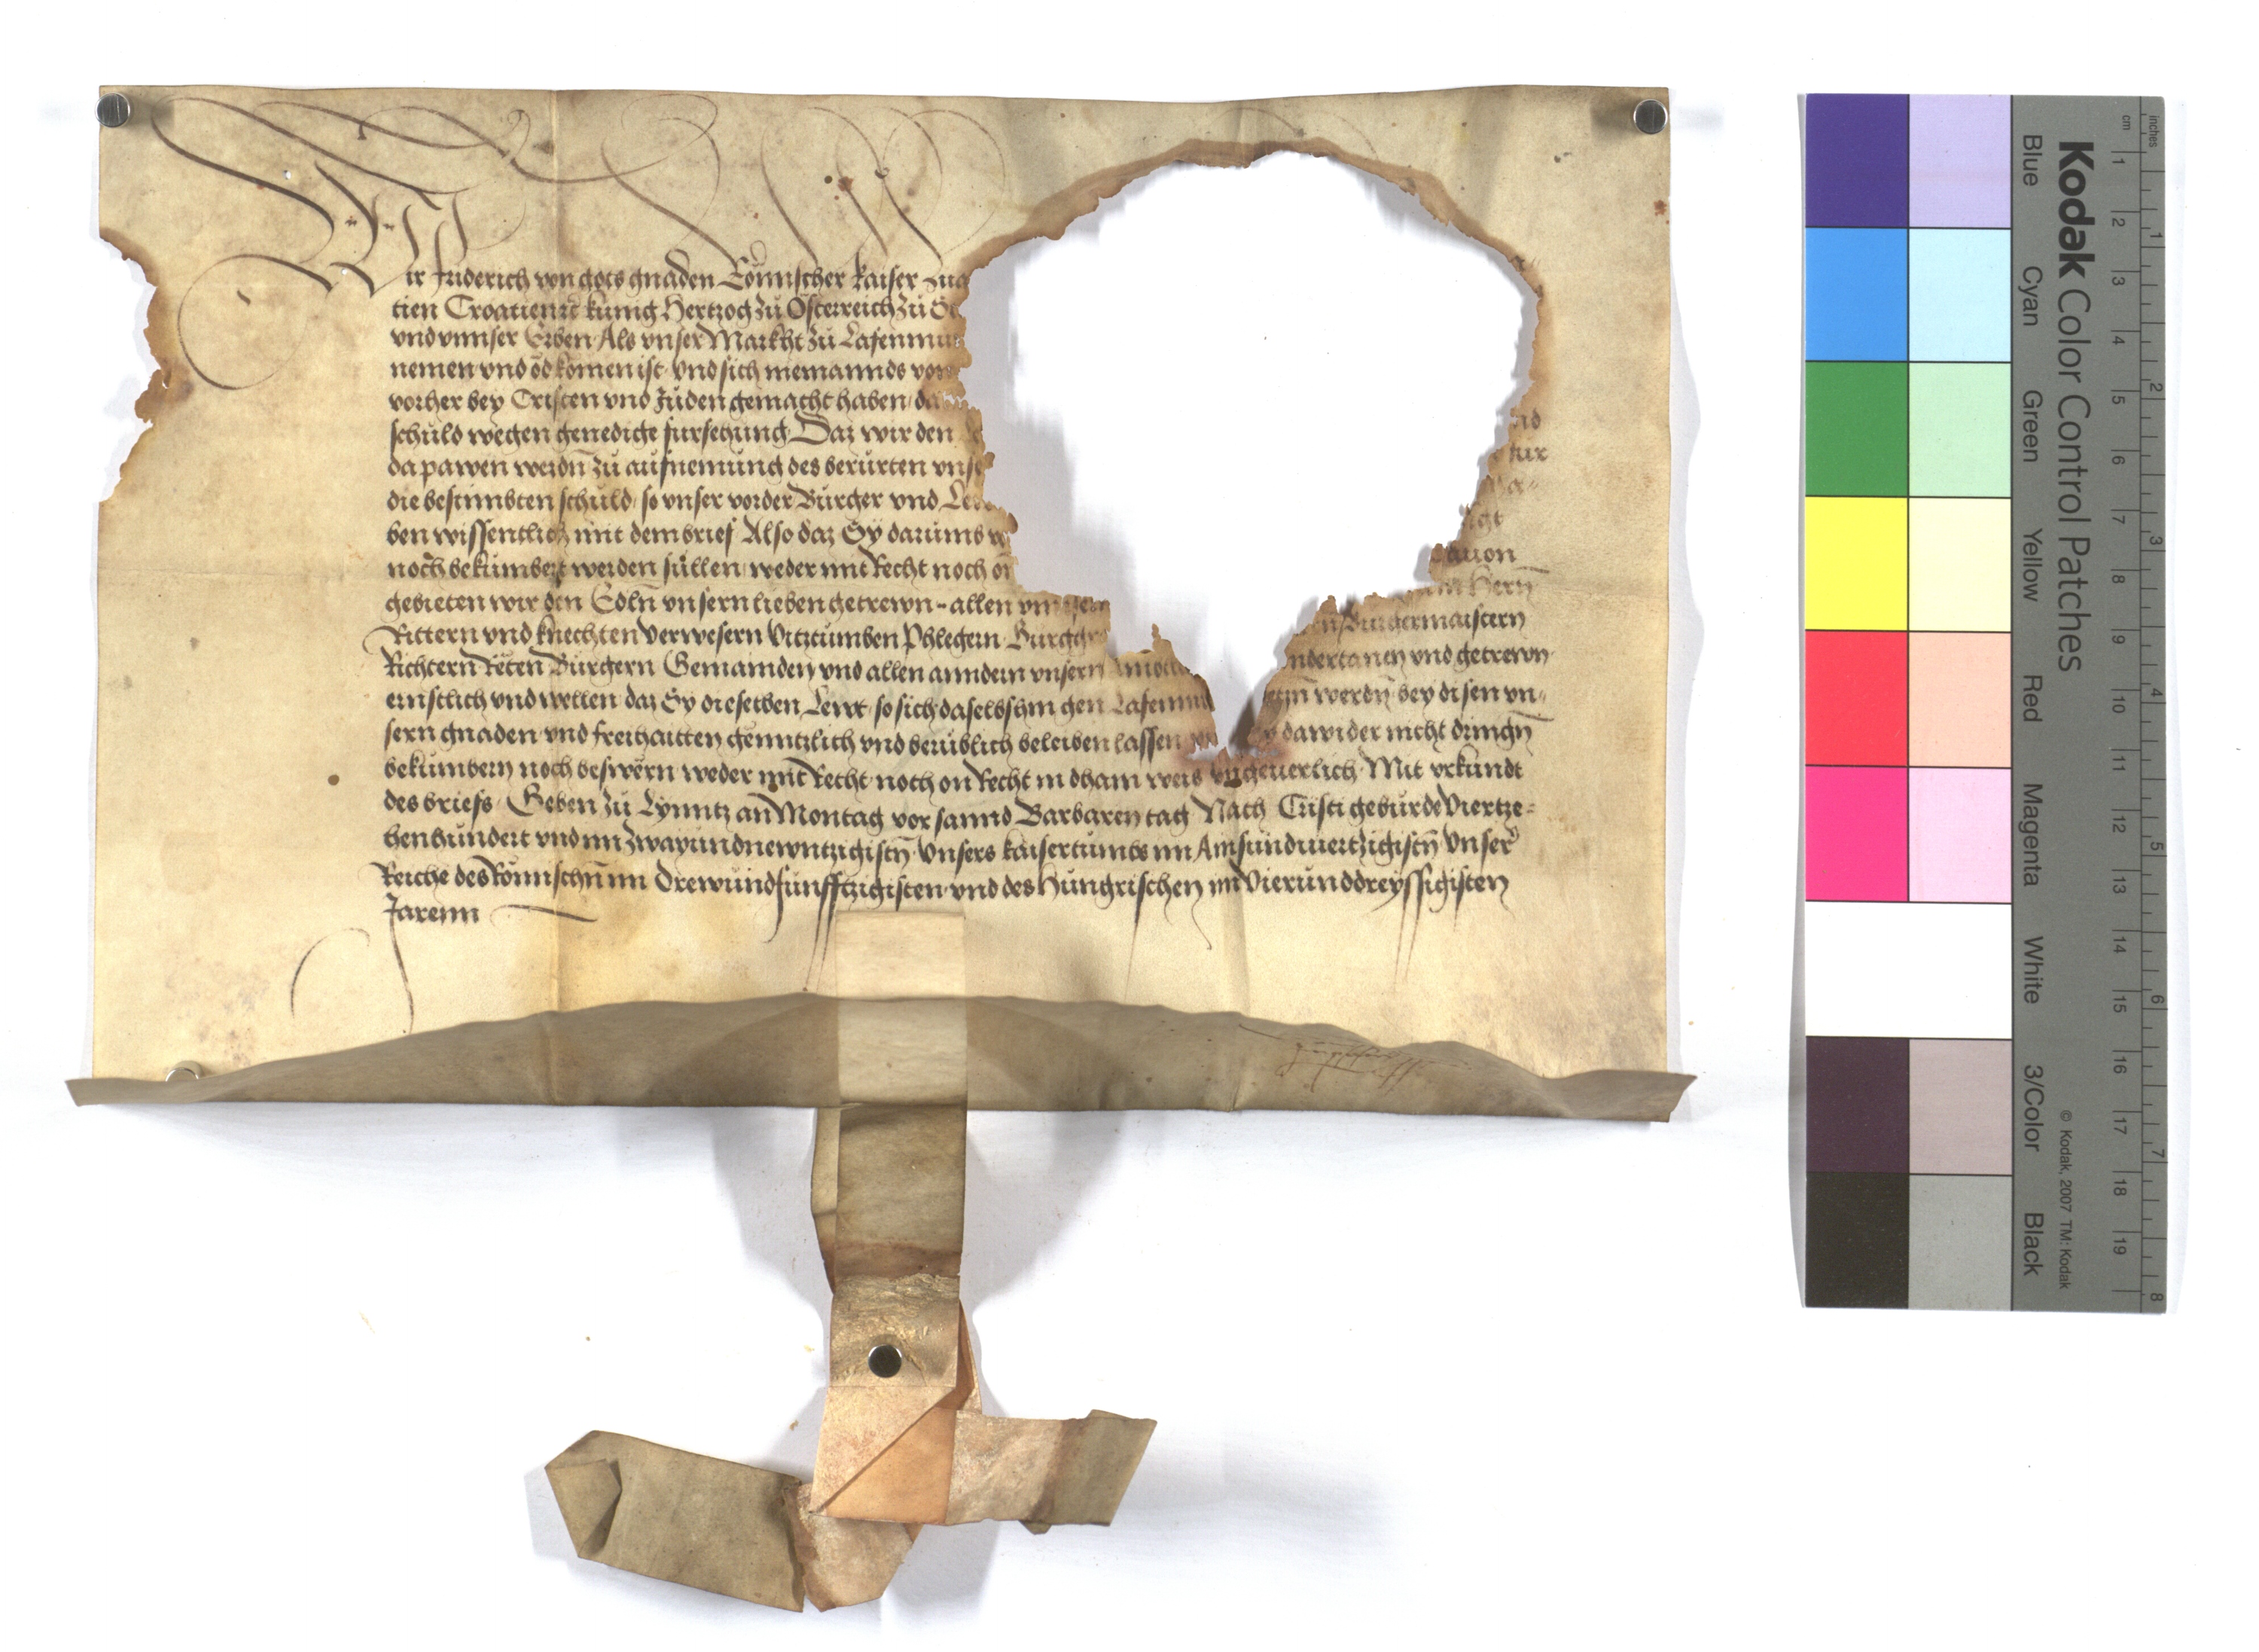 Wir Friderich von gots gnaden Römischer kaiser Zu
tien Croatien rc kunig Hertzog zu Österreich zu
vnd vnnser Erben Als vnser Markht zu Laxenmur
nemen vnd öd komen ist vnd sich niemannds von
vorher bey Cristen vnd Juden gemacht haben da
schuld wegen genedige fursehung Daz wir den
da pawen werdn zu aufnemung des berurten vnse
die bestimbten schuld so vnser vorder Burger vnd
ben wissentlich mit dem brief Also daz Sy darumb
noch bekumbert werden sullen weder mit Recht noch on
gebieten wir den Edeln vnsern lieben getrewn allen vnsern Hern
Rittern vnd knechten Verwesern Vitztumben Phlegern Burggr Burgermaistern
Richtern Reten Burgern Gemainden vnd allen anndern vnsern vndertanen vnd getrewn
ernstlich vnd wellen daz Sy dieselben Lewt so sich daselbshin gen Laxenmur setzn werdn bey disen vn-
sern gnaden vnd freihaitten genntzlich vnd berublich beleiben lassen dawider nicht dringn
bekumbern noch beswern weder mit Recht noch on Recht in dhain weis vngeuerlich Mit vrkundt
des briefs Geben zu Lynntz an Montag vor sannd Barbaren tag Nach Cristi geburde Viertze-
henhundert vnd im Zwayundnewntzigistn Vnsers kaisertumbs im Ainsundviertzigistn Vnser
Reiche des Römischn im Drewundfunfftzigisten vnd des Hungrischen im Vierunddreyssigisten
Jarenn
Kodak Color Control Patches
© Kodak, 2007 TM: Kodak
Blue Cyan Green Yellow Red Magenta White 3/Color Black
cm 1 2 3 4 5 6 7 8 9 10 11 12 13 14 15 16 17 18 19
inches 1 2 3 4 5 6 7 8